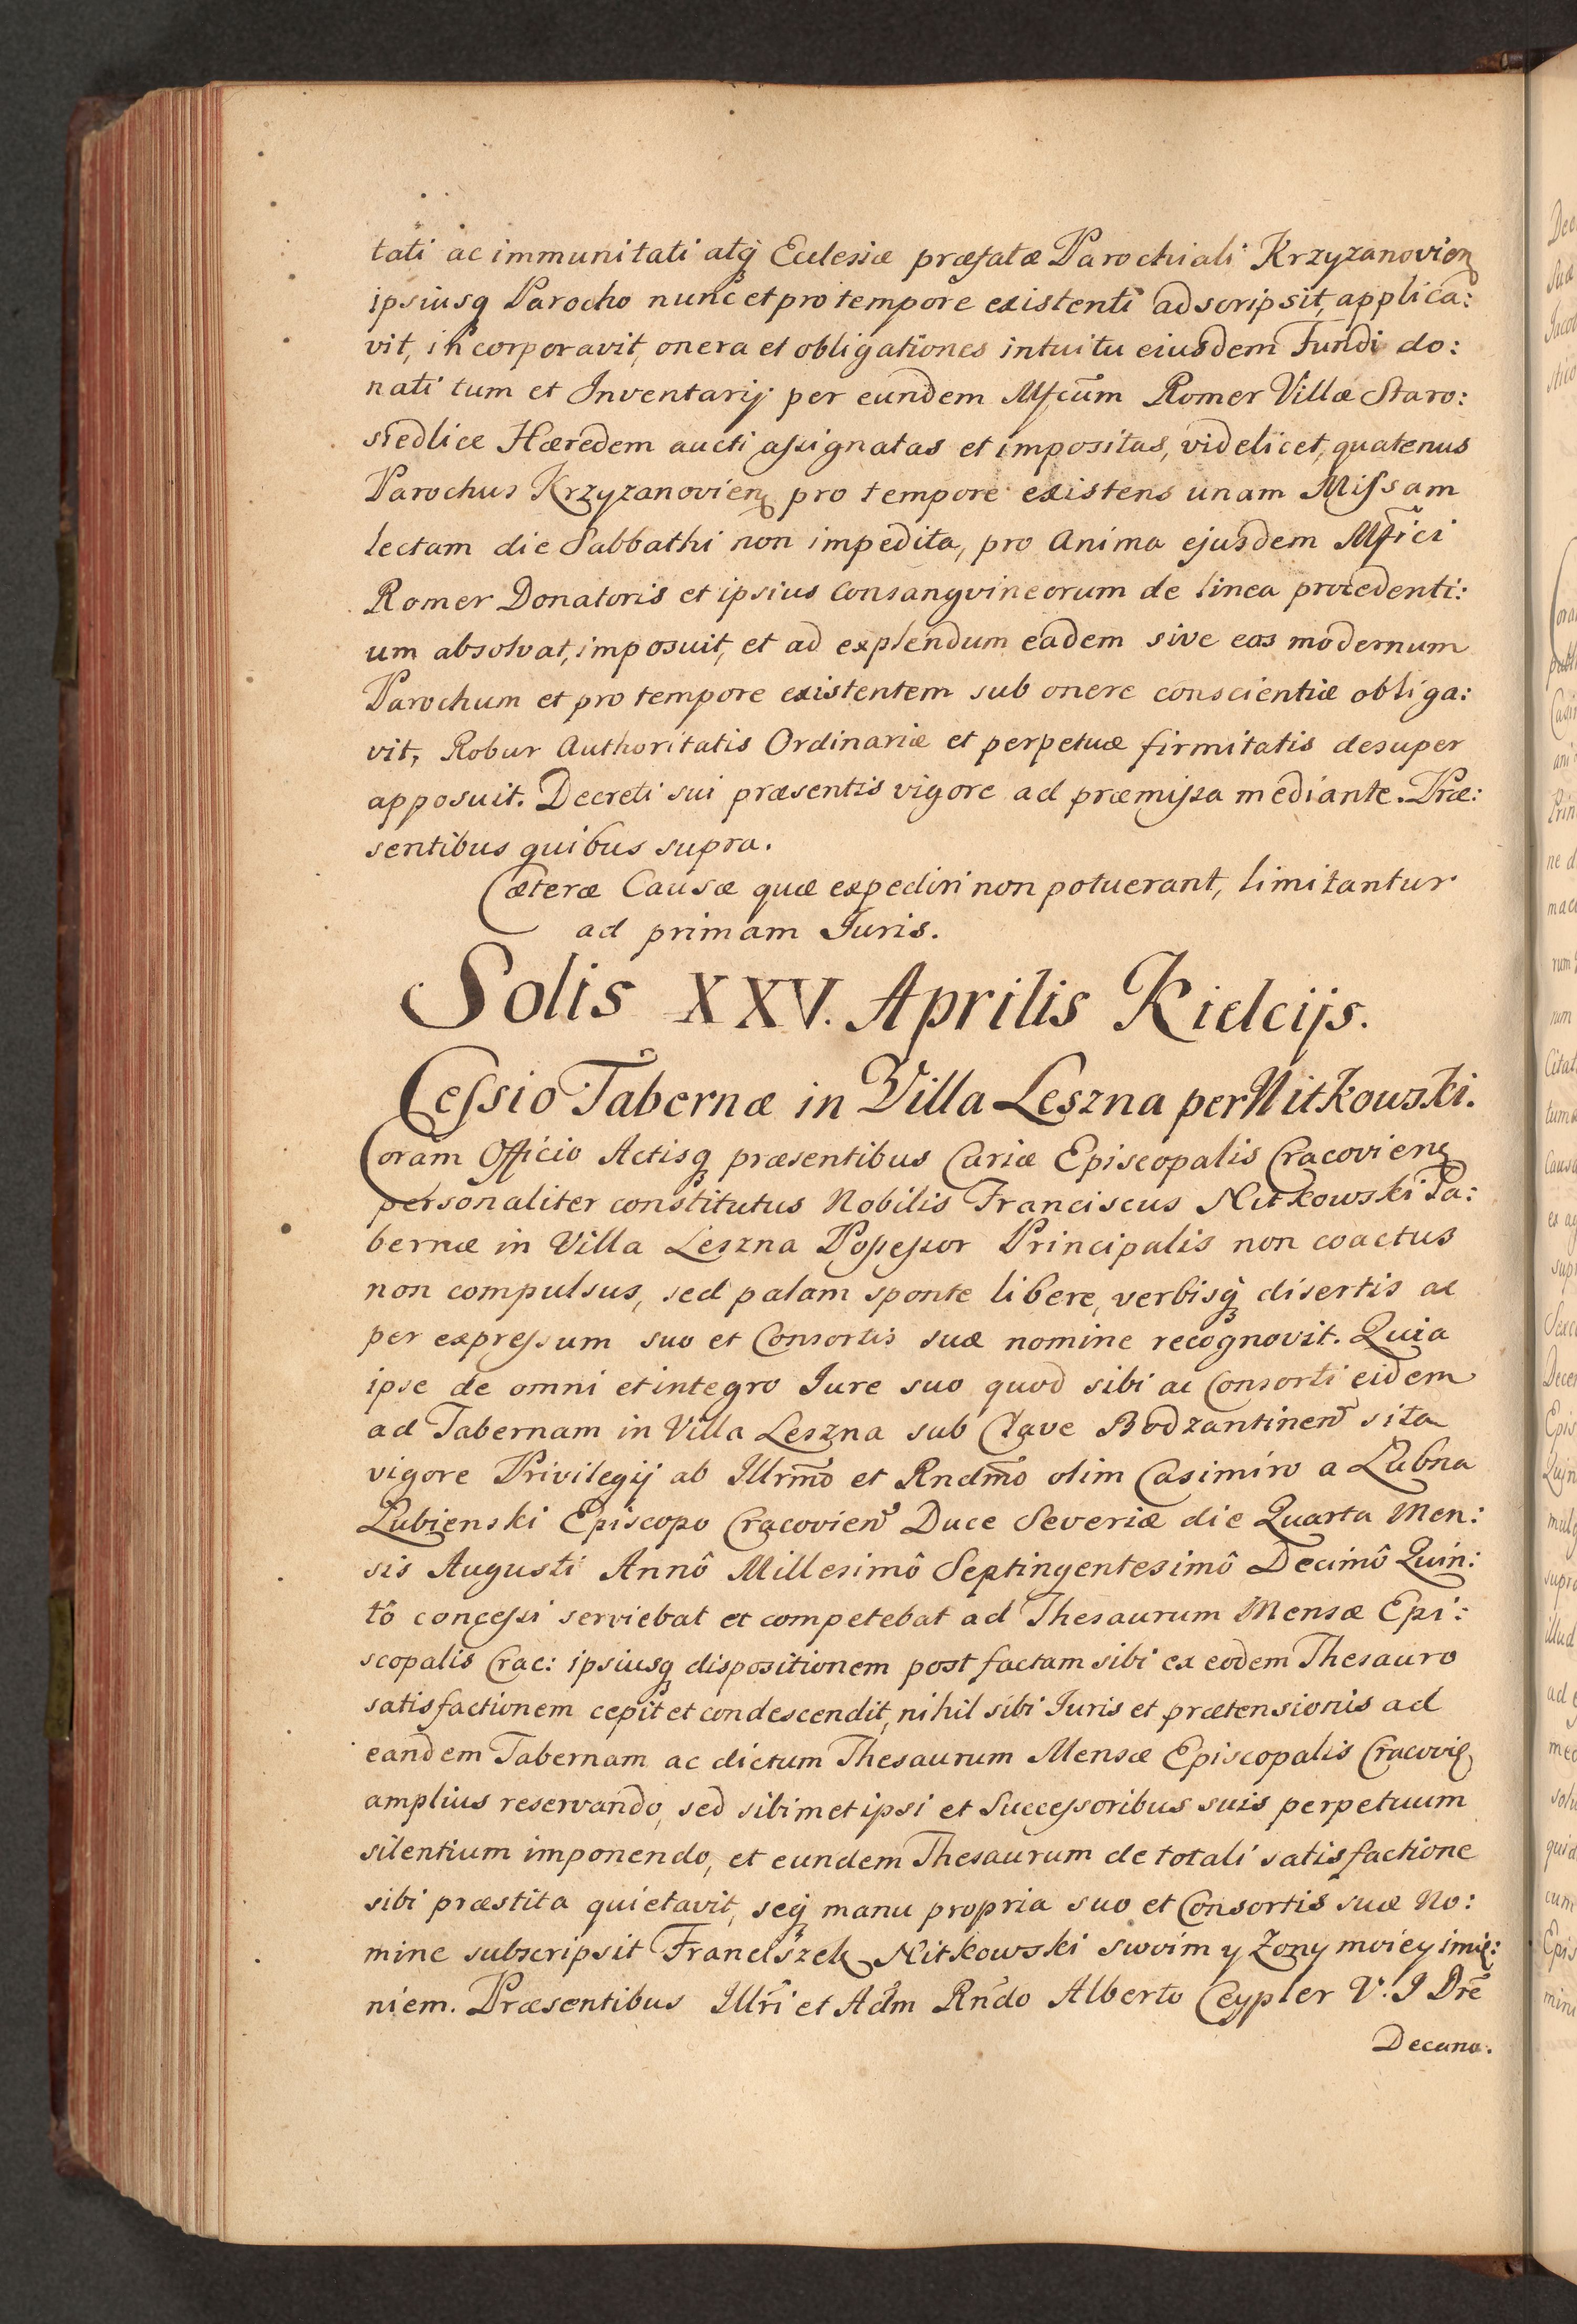 tati ac immunitati atq̃ Ecclesiæ præfatæ Parochiali Krzyzanovien
ipsiusq Parocho nunc et pro tempore existenti adscripsit, applica:
vit, incorporavit, onera et obligationes intuitu eiusdem Fundi do:
nati tum et Inventarij per eundem Mfcum̃ Romer Villæ Staro:
siedlice Hæredem aucti assignatas et impositas, videlicet, quatenus
Parochus Krzyzanovien pro tempore existens unam Missam
lectam die Sabbathi non impedita, pro Anima ejusdem Mfici
Romer Donatoris et ipsius Consangvineorum de linea procedenti:
um absolvat, imposuit, et ad explendum eadem sive eos modernum
Parochum et pro tempore existentem sub onere conscientiæ obliga:
vit, Robur Authoritatis Ordinariæ et perpetuæ firmitatis desuper
apposuit. Decreti sui præsentis vigore ad præmissa mediante. Præ:
sentibus quibus supra.
Cæteræ Causæ quæ expediri non potuerant, limitantur
ad primam Juris.
Solis XXV. Aprilis Kielcijs.
Cessio Tabernæ in Villa Leszna per Nitkowski.
Coram Officio Actisq præsentibus Curiæ Episcopalis Cracovien
personaliter constitutus Nobilis Franciscus Nitkowski Ta:
bernæ in Villa Leszna Possessor Principalis non coactus
non compulsus, sed palam sponte libere, verbisq̃ disertis ac
per expressum suo et Consortis suæ nomine recognovit. Quia
ipse de omni et integro Jure suo quod sibi ac Consorti eidem
ad Tabernam in Villa Leszna sub Clave Bodzantinen sita
vigore Privilegij ab Illrm̃o et Rndm̃o olim Casimiro a Lubna
Lubienski Episcopo Cracovien Duce Severiæ die Quarta Men:
sis Augusti Annô Millesimô Septingentesimô Decimô Quin:
tô concessi serviebat et competebat ad Thesaurum Mensæ Epi:
scopalis Crac: ipsiusq dispositionem post factam sibi ex eodem Thesauro
satisfactionem cepit et condescendit, nihil sibi Juris et prætensionis ad
eandem Tabernam ac dictum Thesaurum Mensæ Episcopalis Cracovie
amplius reservando, sed sibimet ipsi et Successoribus suis perpetuum
silentium imponendo, et eundem Thesaurum de totali satisfactione
sibi præstita quietavit, seq̃ manu propria suo et Consortis suæ No:
mine subscripsit Franciszek Nitkowski swoim y Zony moiey imię:
niem. Præsentibus Illrĩ et Adm Rndo Alberto Ceypler V. J Drẽ
Decano.